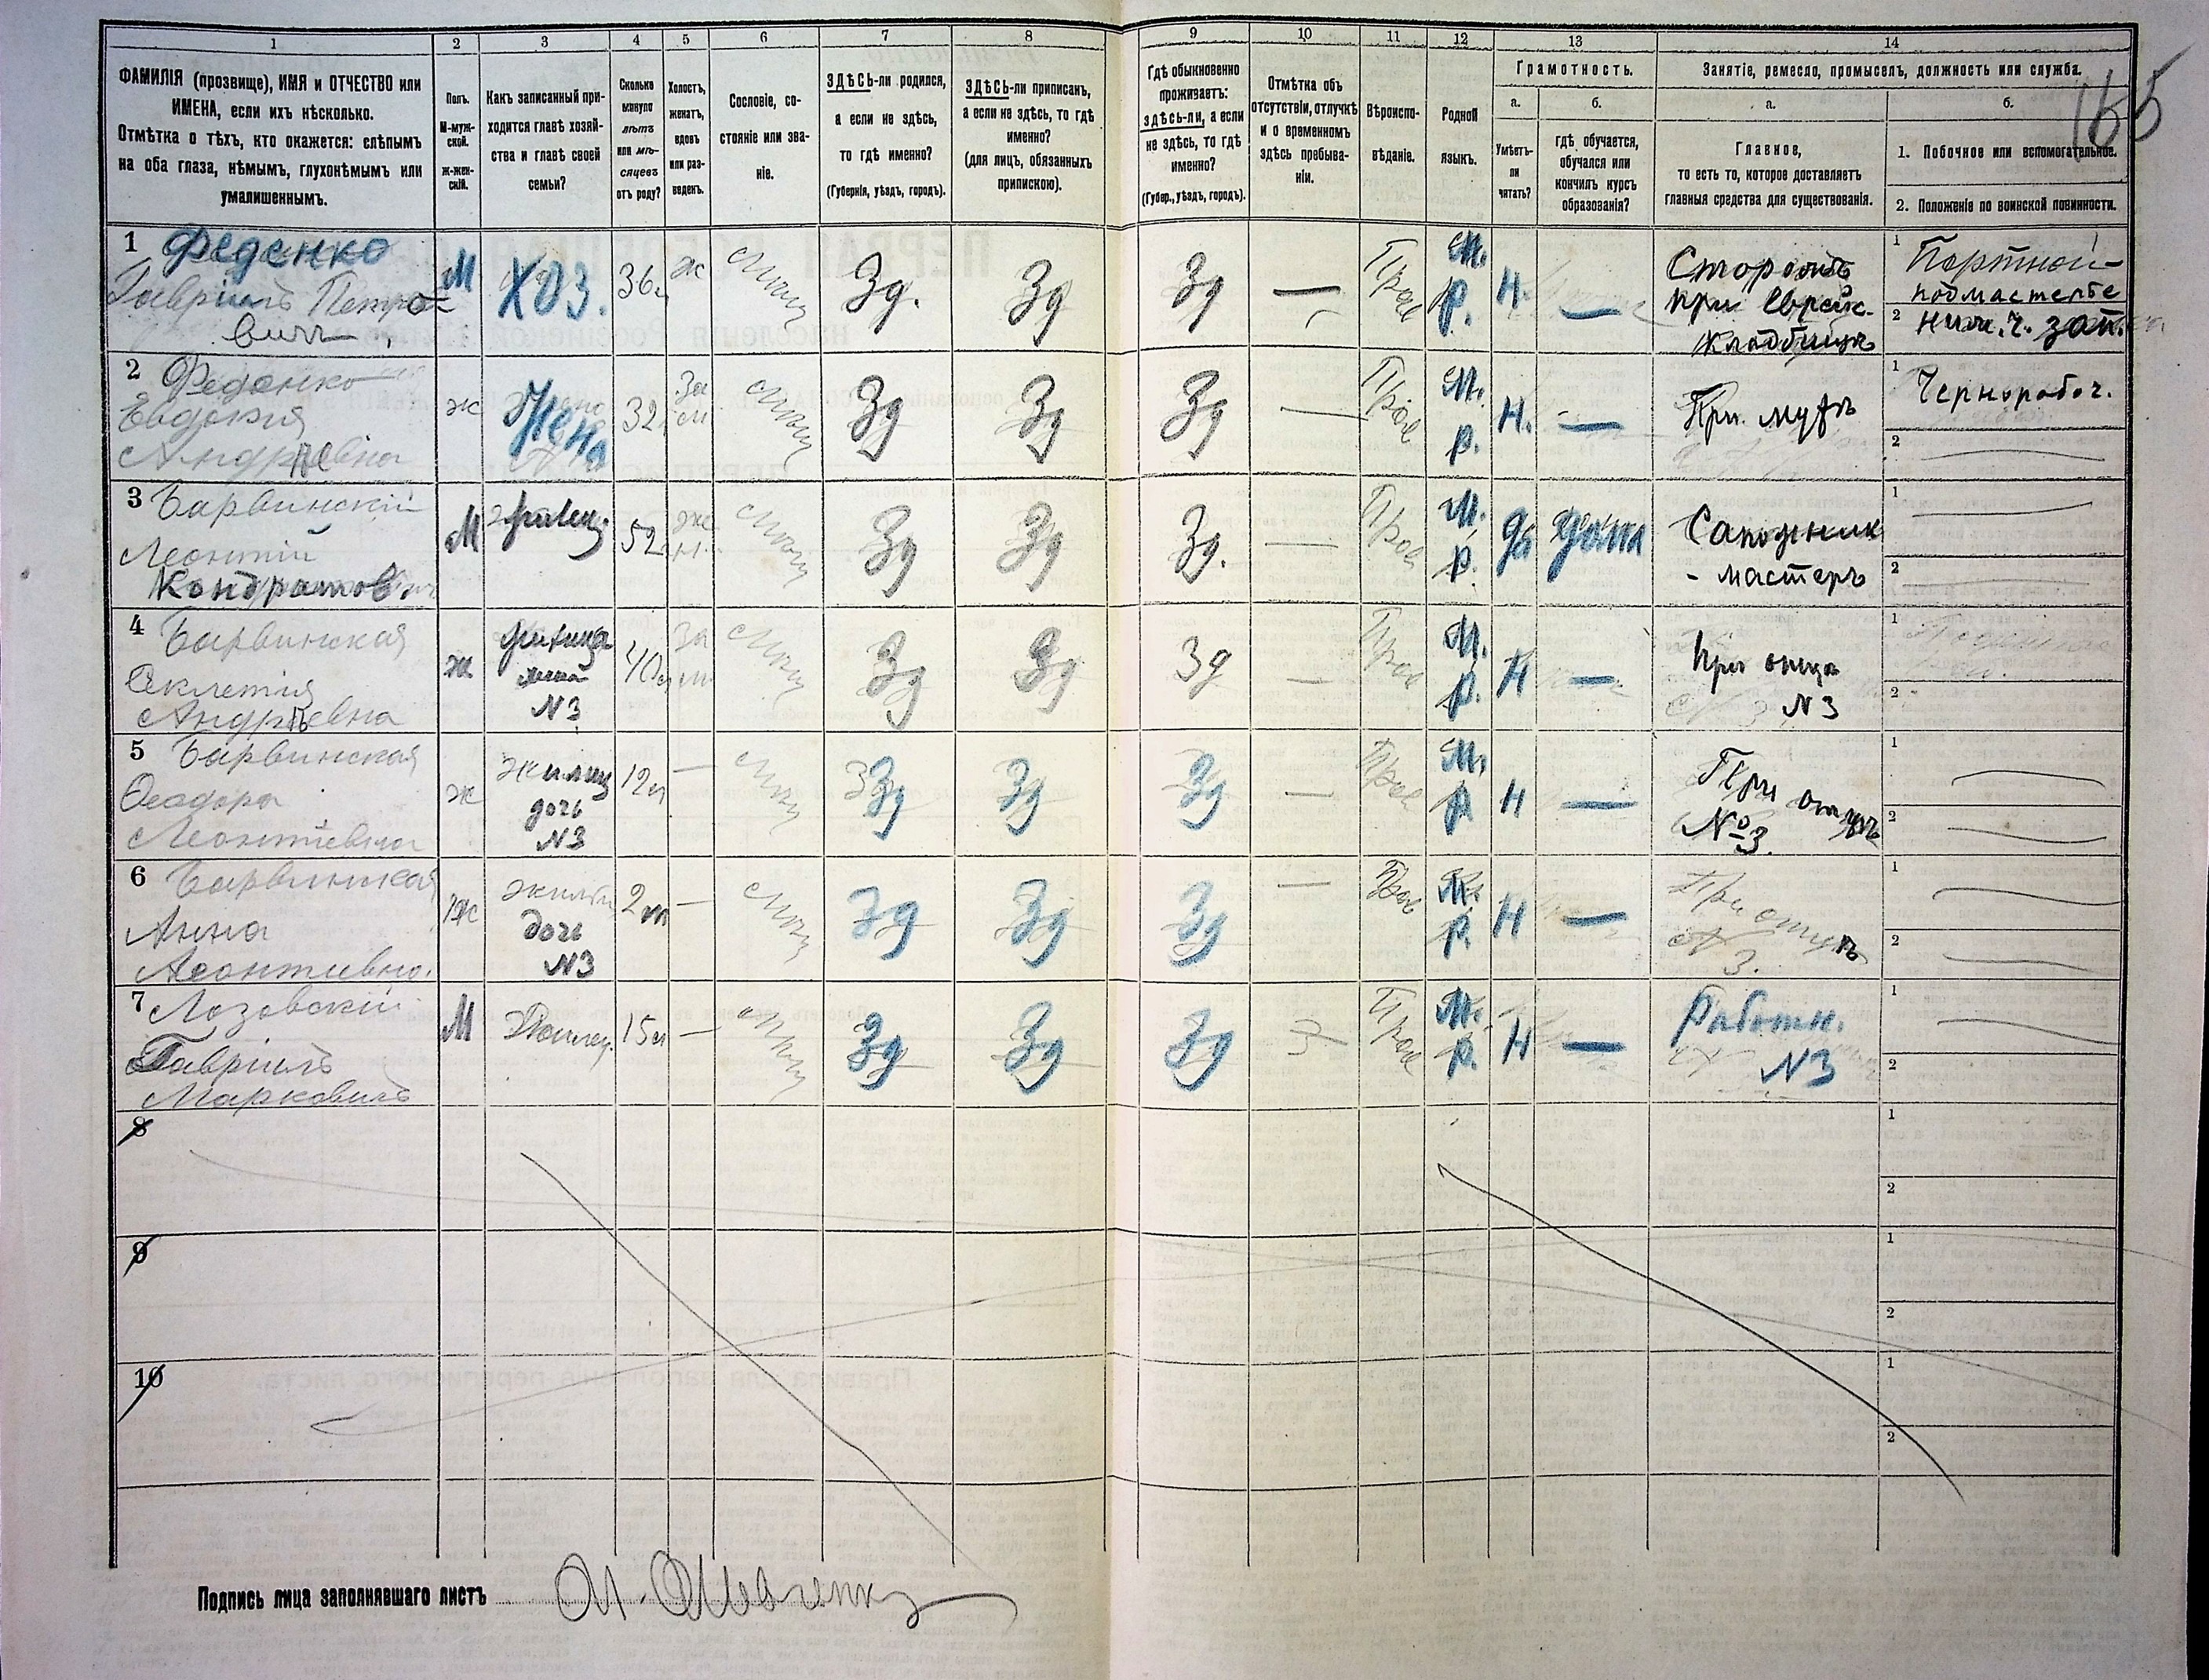 165
1
2
3
4
5
6
7
8
9
10
11
12
13
14
ФАМИЛІЯ (прозвище), ИМЯ и ОТЧЕСТВО или
ИМЕНА, если ихъ нѣсколько.
Отмѣтка о тѣхъ, кто окажется: слѣпымъ
на оба глаза, нѣмымъ, глухонѣмымъ или
умалишеннымъ.
Полъ.
М-муж-
ской.
ж-жен-
скій.
Какъ записанный при-
ходится главѣ хозяй-
ства и главѣ своей
семьи?
Сколько
минуло
лѣтъ
или мѣ-
сяцевъ
отъ роду?
Холостъ,
женатъ,
вдовъ
или раз-
веденъ.
Сословіе, со-
стояніе или зва-
ніе.
ЗДѢСЬ-ли родился,
а если не здѣсь,
то гдѣ именно?
(Губернія, уѣздъ, городъ).
ЗДѢСЬ-ли приписанъ,
а если не здѣсь, то гдѣ
именно?
(для лицъ, обязанныхъ
припискою).
Гдѣ обыкновенно
проживаетъ:
здѣсь-ли, а если
не здѣсь, то гдѣ
именно?
(Губер., уѣздъ, городъ).
Отмѣтка объ
отсутствіи, отлучкѣ
и о временномъ
здѣсь пребыва-
ніи.
Вѣроиспо-
вѣданіе.
Родной
языкъ.
Грамотность.
а.
Умѣетъ-
ли
читать?
б.
гдѣ обучается,
обучался или
кончилъ курсъ
образованія?
Занятіе, ремесло, промыселъ, должность или служба.
а.
Главное,
то есть то, которое доставляетъ
главныя средства для существованія.
б.
1. Побочное или вспомогательное.
2. Положеніе по воинской повинности.
1 Феденко
Гавріилъ Петро-
вичъ
М
ХОЗ.
36
ж
Зд.
Зд
Зд
—
Прав
М.
р.
Н.
—
Сторожъ
при Еврейс.
кладбищѣ
1 Портной
подмастерье
2 ниж. ч. зап.
2 Феденко
Евдокія
Андреевна
ж
Жена
32
За
м
Зд
Зд
Зд
—
Прав
М.
р.
Н.
—
При мужѣ
1 Чернорабоч.
2
3 Барвинскій
Леонтій
Кондратов
М
52
Зд
Зд
Зд.
—
Прав
М.
р.
да
дома
Сапожник
- мастеръ
1
2
4 Барвинская
Андрѣевна
ж
жена
N3
40
За
м
Зд
Зд
Зд
—
Прав
М.
р.
Н
—
При отцѣ
N3
1
2
5 Барвинская
Ѳеодора
Леонтіевна
ж
жилиц
дочь
N3
12
—
Зд
Зд
Зд
—
Прав
М.
р
Н
—
При отцѣ
№3.
1
2
6 Барвинская
Анна
Леонтиевна.
ж
дочь
N3
2
—
Зд
Зд
Зд
—
Прав
М.
р.
Н
—
При отцѣ
N 3.
1
2
7 Лозовскій
Гавріилъ
Марковичъ
М
15
—
Зд
Зд
Зд
Прав
М.
р.
Н
—
Работн.
N3
1
2
8
1
2
9
1
2
10
1
2
Подпись лица заполнявшаго листъ